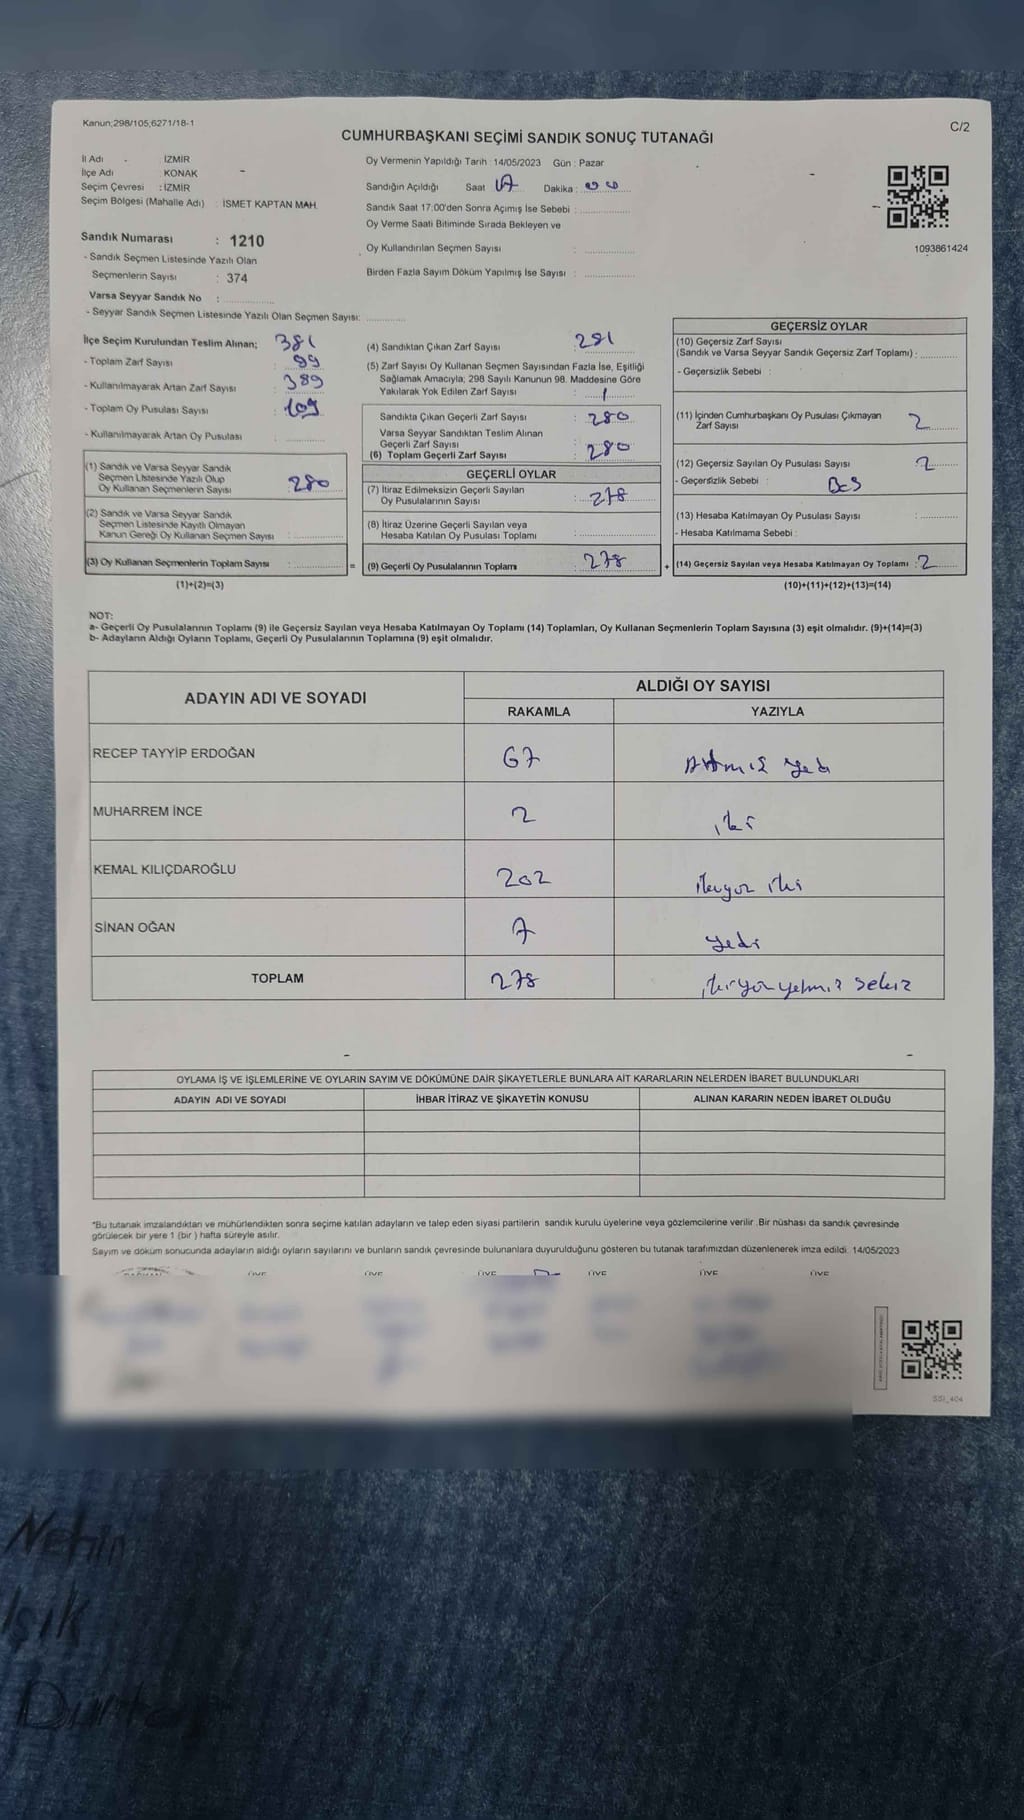 Kanun;298/105,6271/18-1
C/2
CUMHURBAŞKANI SEÇİMİ SANDIK SONUÇ TUTANAĞI
İl Adı : İZMİR
İlçe Adı : KONAK
Seçim Çevresi : İZMİR
Seçim Bölgesi (Mahalle Adı) : İSMET KAPTAN MAH.
Oy Vermenin Yapıldığı Tarih :14/05/2023 Gün : Pazar
Sandığın Açıldığı Saat 17 Dakika : 00
Sandık Saat 17:00'den Sonra Açımış İse Sebebi :
Oy Verme Saati Bitiminde Sırada Bekleyen ve
Oy Kullandırılan Seçmen Sayısı :
Birden Fazla Sayım Döküm Yapılmış İse Sayısı :
1093861424
Sandık Numarası : 1210
- Sandık Seçmen Listesinde Yazılı Olan
Seçmenlerin Sayısı : 374
Varsa Seyyar Sandık No :
- Seyyar Sandık Seçmen Listesinde Yazılı Olan Seçmen Sayısı:
İlçe Seçim Kurulundan Teslim Alınan; 381
- Toplam Zarf Sayısı : 99
- Kullanılmayarak Artan Zarf Sayısı : 389
- Toplam Oy Pusulası Sayısı : 109
- Kullanılmayarak Artan Oy Pusulası :
(1) Sandık ve Varsa Seyyar Sandık
Seçmen Listesinde Yazılı Olup
Oy Kullanan Seçmenlerin Sayısı : 280
(2) Sandık ve Varsa Seyyar Sandık
Seçmen Listesinde Kayıtlı Olmayan
Kanun Gereği Oy Kullanan Seçmen Sayısı :
(3) Oy Kullanan Seçmenlerin Toplam Sayısı :
(1)+(2)=(3)
(4) Sandıktan Çıkan Zarf Sayısı : 281
(5) Zarf Sayısı Oy Kullanan Seçmen Sayısından Fazla İse, Eşitliği
Sağlamak Amacıyla; 298 Sayılı Kanunun 98. Maddesine Göre
Yakılarak Yok Edilen Zarf Sayısı : 1
Sandıkta Çıkan Geçerli Zarf Sayısı : 280
Varsa Seyyar Sandıktan Teslim Alınan
Geçerli Zarf Sayısı :
(6) Toplam Geçerli Zarf Sayısı : 280
GEÇERLİ OYLAR
(7) İtiraz Edilmeksizin Geçerli Sayılan
Oy Pusulalarının Sayısı : 278
(8) İtiraz Üzerine Geçerli Sayılan veya
Hesaba Katılan Oy Pusulası Toplamı :
= (9) Geçerli Oy Pusulalarının Toplamı : 278
GEÇERSİZ OYLAR
(10) Geçersiz Zarf Sayısı
(Sandık ve Varsa Seyyar Sandık Geçersiz Zarf Toplamı) :
- Geçersizlik Sebebi :
(11) İçinden Cumhurbaşkanı Oy Pusulası Çıkmayan
Zarf Sayısı : 2
(12) Geçersiz Sayılan Oy Pusulası Sayısı : 2
- Geçersizlik Sebebi : Boş
(13) Hesaba Katılmayan Oy Pusulası Sayısı :
- Hesaba Katılmama Sebebi :
+ (14) Geçersiz Sayılan veya Hesaba Katılmayan Oy Toplamı : 2
(10)+(11)+(12)+(13)=(14)
NOT:
a- Geçerli Oy Pusulalarının Toplamı (9) ile Geçersiz Sayılan veya Hesaba Katılmayan Oy Toplamı (14) Toplamları, Oy Kullanan Seçmenlerin Toplam Sayısına (3) eşit olmalıdır. (9)+(14)=(3)
b- Adayların Aldığı Oyların Toplamı, Geçerli Oy Pusulalarının Toplamına (9) eşit olmalıdır.
ADAYIN ADI VE SOYADI
ALDIĞI OY SAYISI
RAKAMLA YAZIYLA
RECEP TAYYİP ERDOĞAN 67 Altmış yedi
MUHARREM İNCE 2 iki
KEMAL KILIÇDAROĞLU 202 ikiyüz iki
SİNAN OĞAN 7 yedi
TOPLAM 278 ikiyüz yetmiş sekiz
OYLAMA İŞ VE İŞLEMLERİNE VE OYLARIN SAYIM VE DÖKÜMÜNE DAİR ŞİKAYETLERLE BUNLARA AİT KARARLARIN NELERDEN İBARET BULUNDUKLARI
ADAYIN ADI VE SOYADI İHBAR İTİRAZ VE ŞİKAYETİN KONUSU ALINAN KARARIN NEDEN İBARET OLDUĞU
*Bu tutanak imzalandıktan ve mühürlendikten sonra seçime katılan adayların ve talep eden siyasi partilerin sandık kurulu üyelerine veya gözlemcilerine verilir .Bir nüshası da sandık çevresinde
görülecek bir yere 1 (bir ) hafta süreyle asılır.
Sayım ve döküm sonucunda adayların aldığı oyların sayılarını ve bunların sandık çevresinde bulunanlara duyurulduğunu gösteren bu tutanak tarafımızdan düzenlenerek imza edildi. 14/05/2023
BAŞKAN ÜYE ÜYE ÜYE ÜYE ÜYE ÜYE
SSI_404
Nehir
Işık